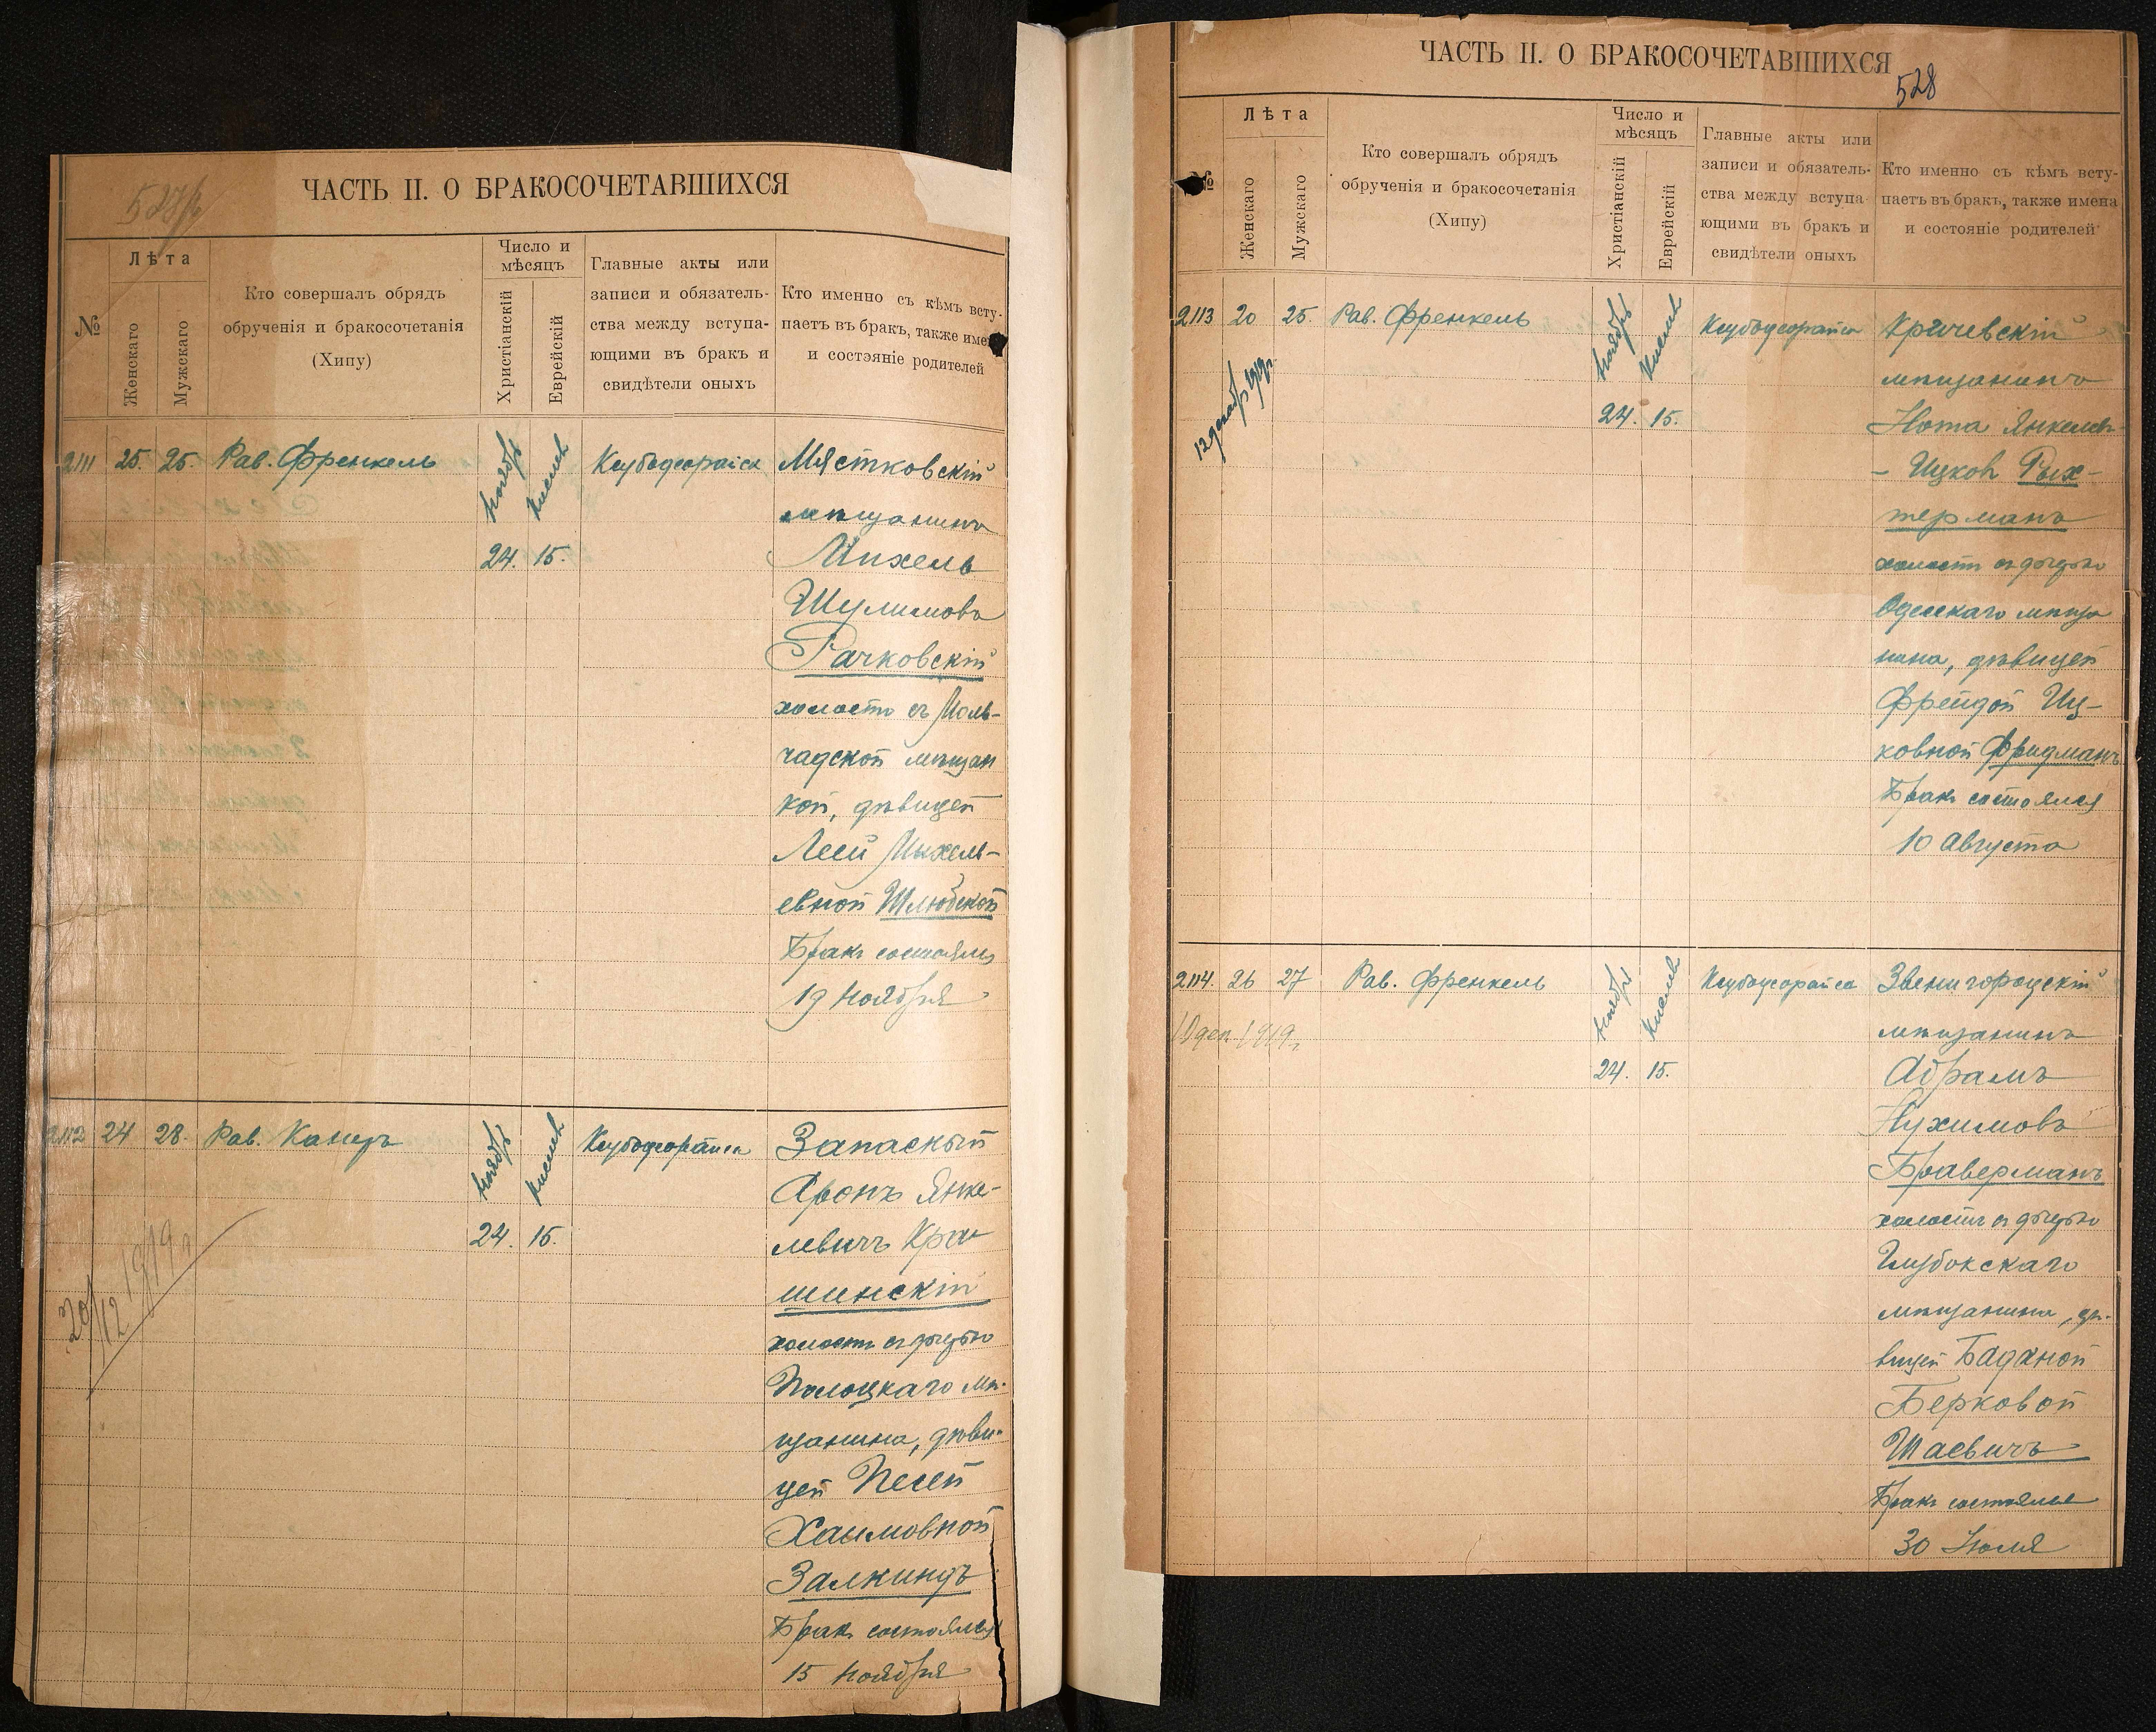 ЧАСТЬ II. О БРАКОСОЧЕТАВШИХСЯ
№
Лѣта
Женскаго
Мужскаго
Кто совершалъ обрядъ
обрученія и бракосочетанія
(Хипу)
Число и
мѣсяцъ
Христіанскій
Еврейскій
Главные акты или
записи и обязатель-
ства между вступа-
ющими въ бракъ и
свидѣтели оныхъ
Кто именно съ кѣмъ всту-
паетъ въ бракъ, также имен
и состояніе родителей
2111 25. 25. Рав. Френкель
Ноябрь
Кислев
24. 15.
Мястковскій
мѣщанинъ
Михель
Шулимовъ
Рачковскій
холостъ съ Моль-
чадской мѣщан
кой, дѣвицей
Леей Михель-
евной Шлюбской
Бракъ состоялся
19 Ноября
2112 24 28. Рав. Канеръ
Ноябрь
Кислев
24. 15.
20/12 1919 г
Запасный
Аронъ Янке-
левичъ Кра
шинскій
холостъ съ дочерью
Полоцкаго мѣ-
щанина, дѣви-
цей Песей
Хаимовной
Залкиндъ
Бракъ состоялся
15 Ноября
ЧАСТЬ II. О БРАКОСОЧЕТАВШИХСЯ
528
№
Лѣта
Женскаго
Мужскаго
Кто совершалъ обрядъ
обрученія и бракосочетанія
(Хипу)
Число и
мѣсяцъ
Христіанскій
Еврейскій
Главные акты или
записи и обязатель-
ства между вступа-
ющими въ бракъ и
свидѣтели оныхъ
Кто именно съ кѣмъ всту-
паетъ въ бракъ, также имена
и состояніе родителей
2113 20 25. Рав. Френкель
12 декабр 1919 г.
Ноябрь
Кислев
24. 15.
Кричевскій
мѣщанинъ
Нота Янкель-
- Ицков Рых-
терманъ
холостъ съ дочерью
Одесскаго мѣща
нина, дѣвицей
Фрейдой Иц-
ковной Фридманъ
Бракъ состоялся
10 Августа
2114. 26 27 Рав. Френкель
10 дек. 1919 г.
Ноябрь
Кислев
24. 15.
Звенигородскій
мѣщанинъ
Абрамъ
Нухимовъ
Браверманъ
холостъ съ дочерью
Глубокскаго
мѣщанина, дѣ-
вицей Баданой
Берковой
Шаевичъ
Бракъ состоялся
30 Іюля